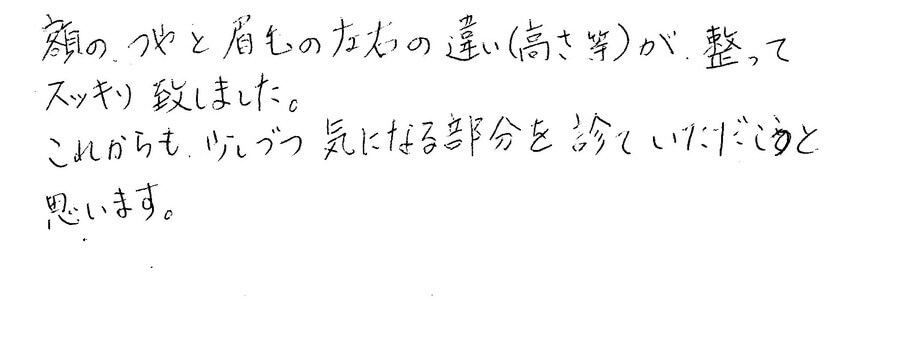 額の つやと眉毛の左右の違い(高さ等)が 整って
スッキリ致しました。
これからも 少しづつ 気になる部分を 診て いただこうと
思います。